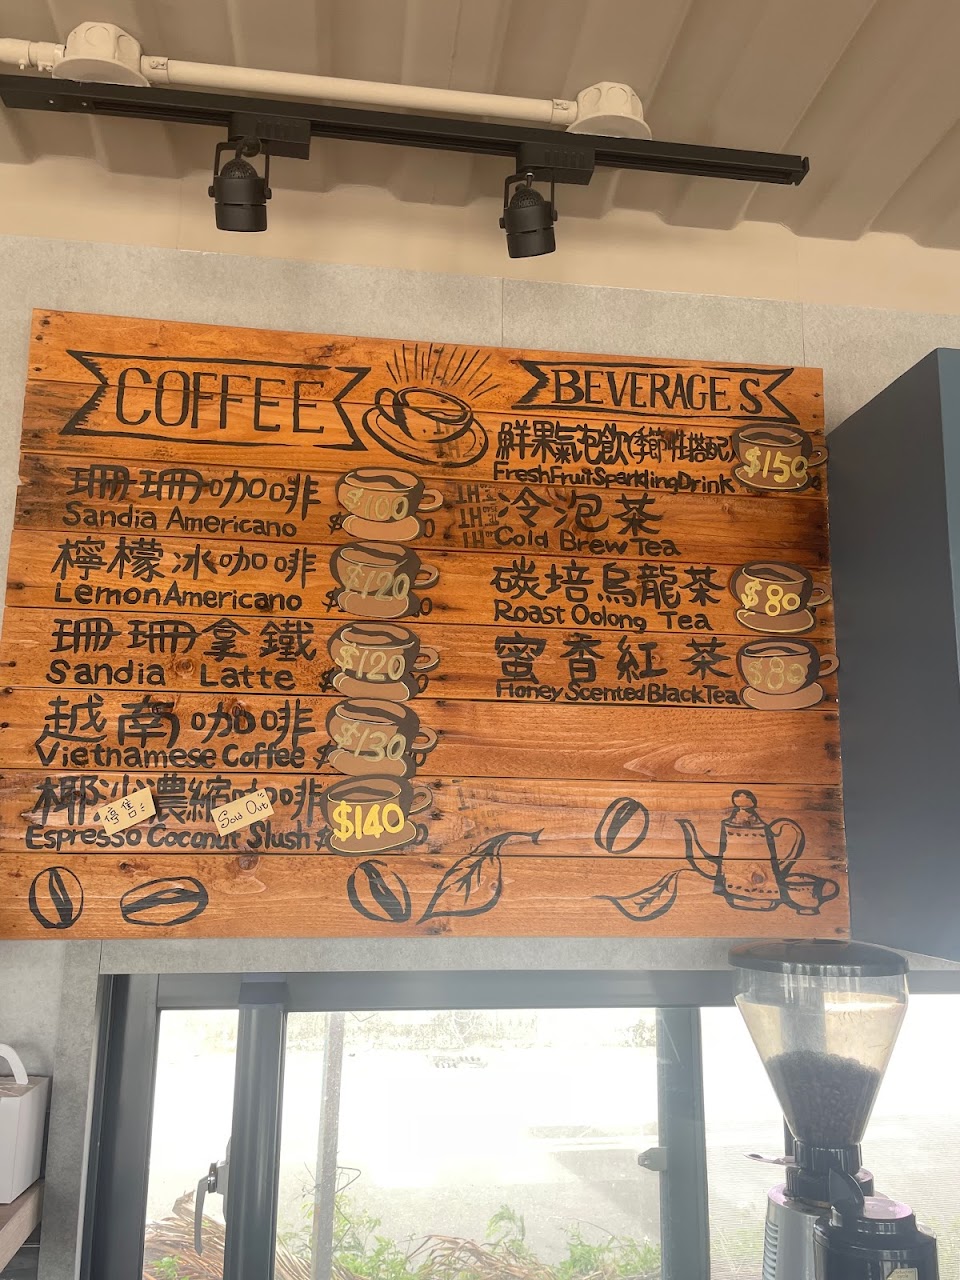 COFFEE
珊珊咖啡
Sandia Americano
$100
檸檬冰咖啡
Lemon Americano
$120
珊珊拿鐵
Sandia Latte
$120
越南咖啡
Vietnamese Coffee
$130
椰沙濃縮咖啡
停售
Sold Out
Espresso Coconut Slush
$140
BEVERAGES
鮮果氣泡飲(季節性搭配)
Fresh Fruit Sparkling Drink
$150
冷泡茶
Cold Brew Tea
碳培烏龍茶
Roast Oolong Tea
$80
蜜香紅茶
Honey Scented Black Tea
$80